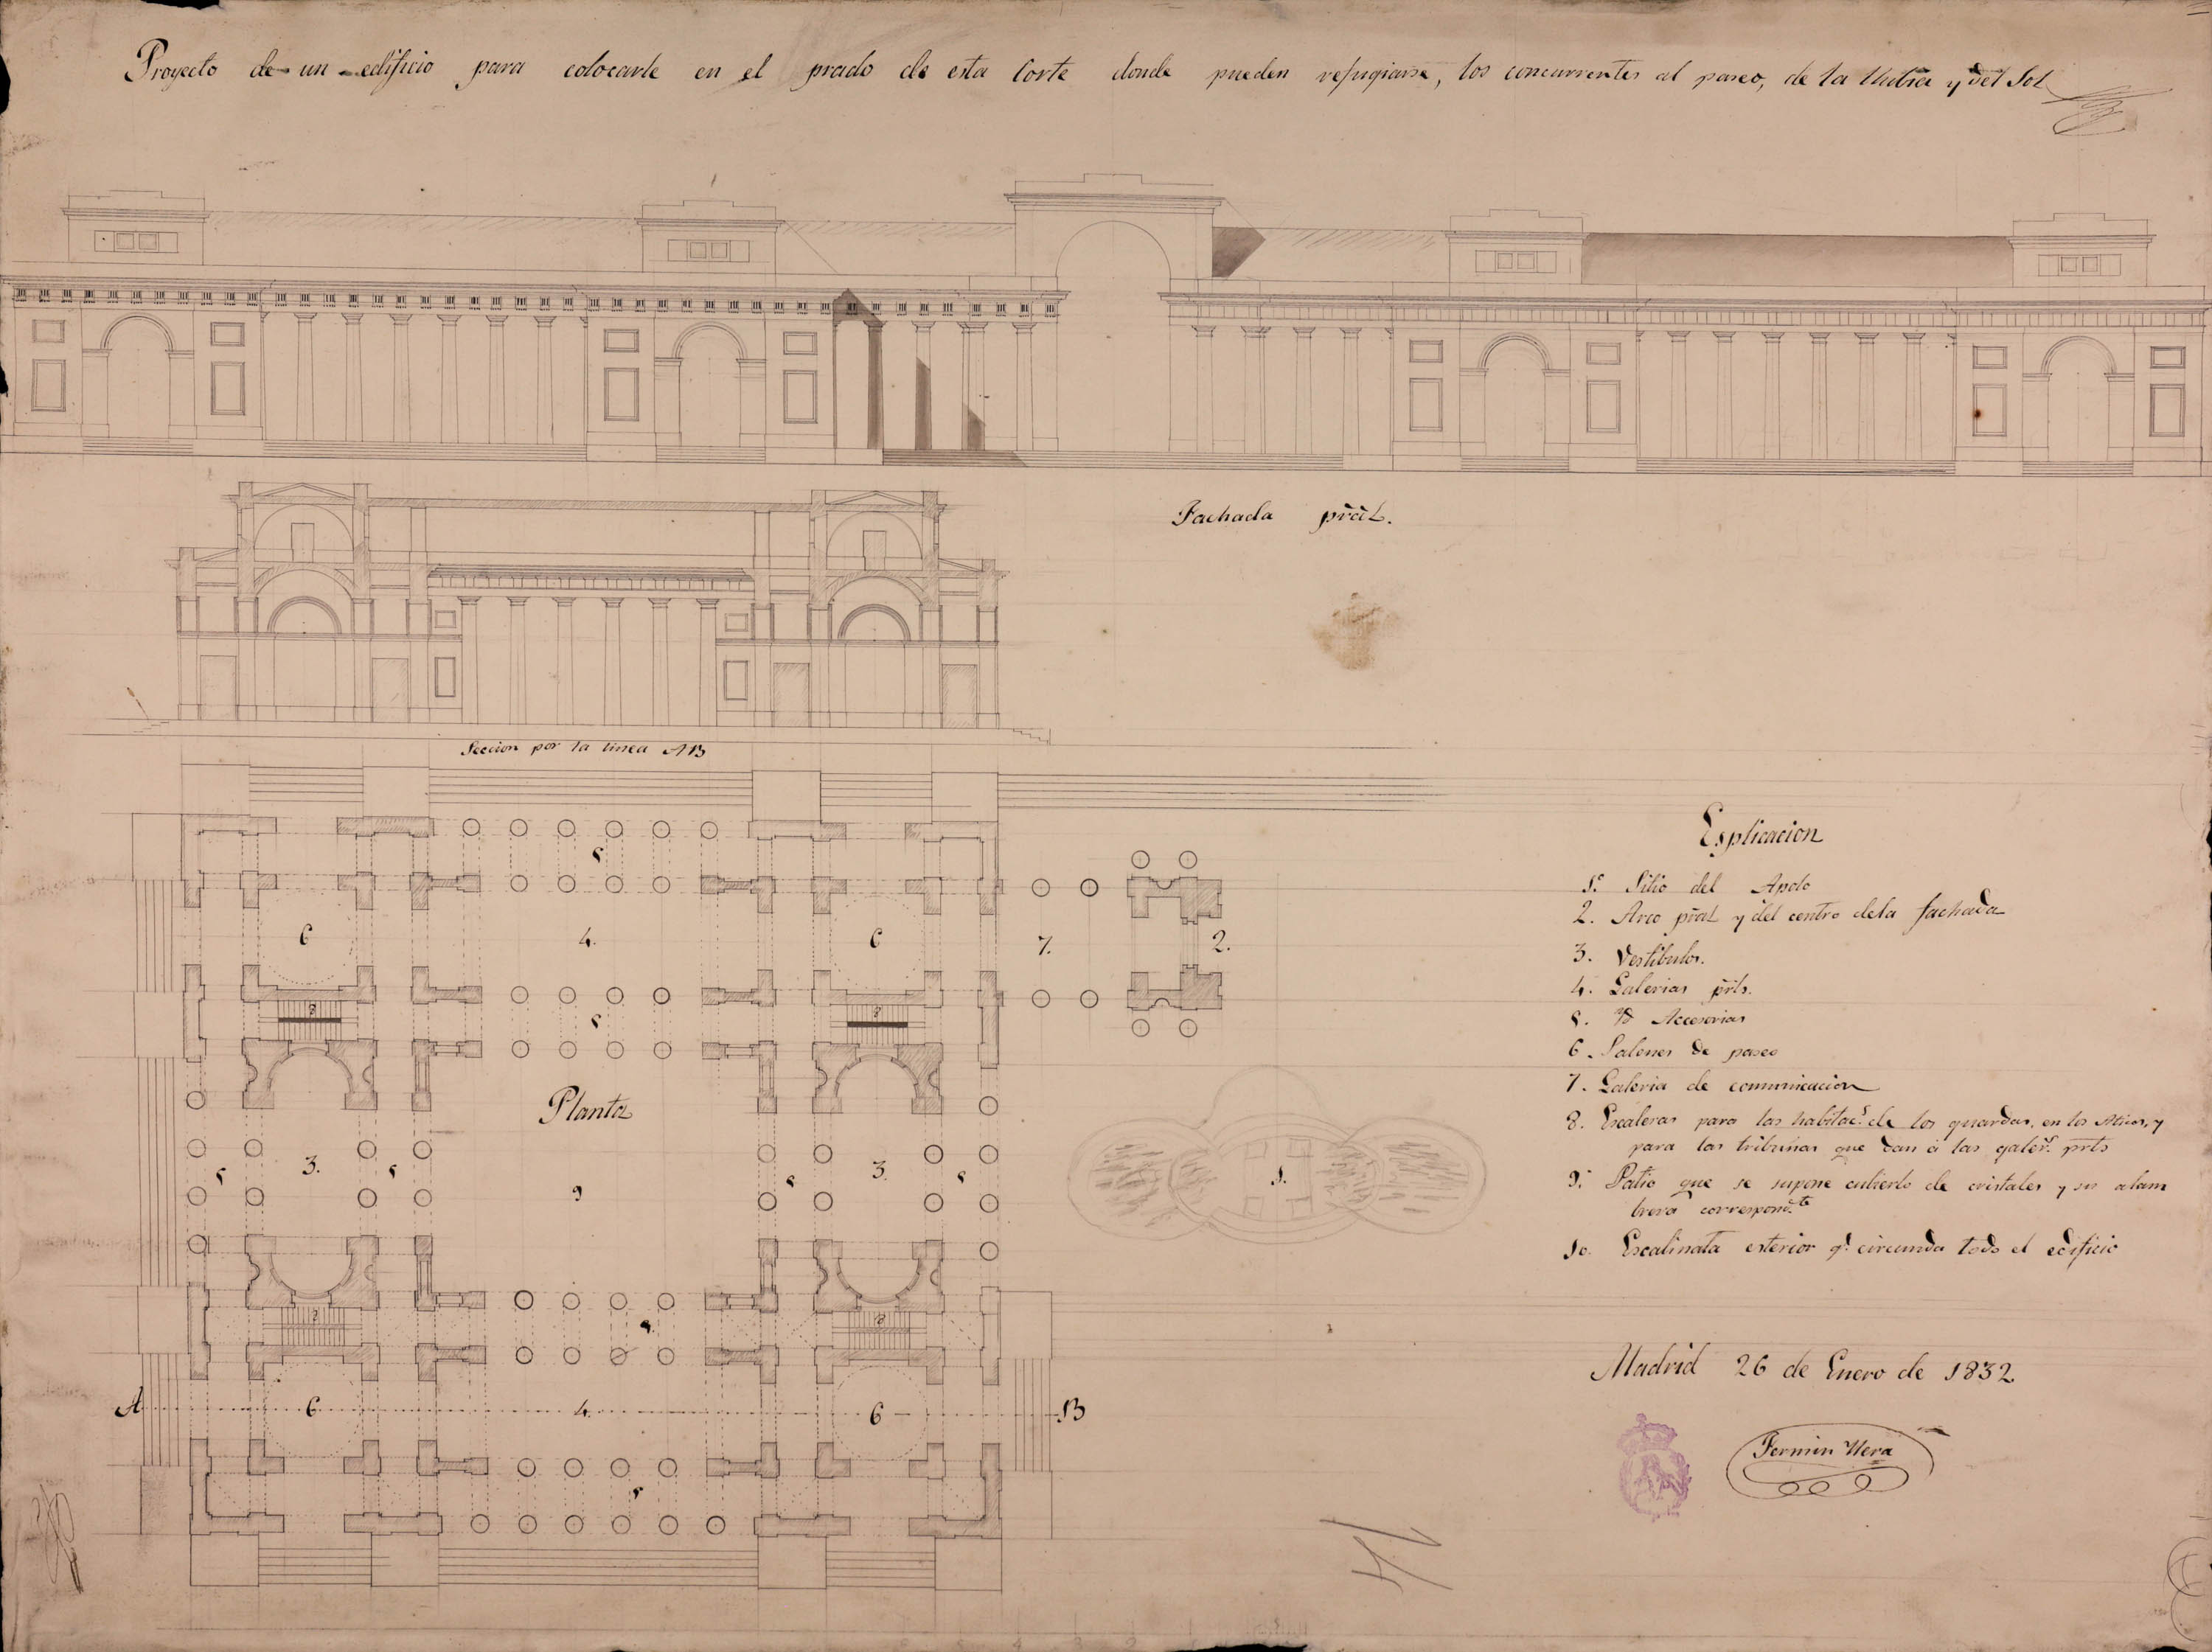 Proyecto de un edificio para colocarle en el prado de esta Corte donde pueden refugiarse, los concurrentes al paseo, de la lluvia y del Sol
Fachada pral.
Seccion por la linea AB
5
6
4.
6
7.
2.
8
5
8
Planta
5
3.
5
9
5
3.
5
1.
8
5
8
A
6
4.
6
B
5
Esplicacion
1.º Sitio del Apolo
2. Arco pral y del centro de la fachada
3. Vestibulos.
4. Galerias prls.
5. Yd Accesorias
6. Salones de paseo
7. Galeria de comunicacion
8. Escaleras para las habitac.s de los guardas, en los Aticos, y
para las tribunas que dan á las galer.s prls
9. Patio que se supone cubierto de cristales y su alam
brera correspond.te
10. Escalinata esterior q.e circunda todo el edificio
Madrid 26 de Enero de 1832.
Fermin Vera